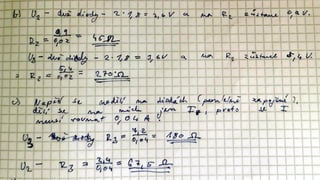 b) U₂ - dvě diody - 2 · 1,8 = 3,6 V a na R₂ zůstane 0,9 V.
R₂ = 0,9/0,02 = 45 Ω
U₃ - dvě diody - 2 · 1,8 = 3,6 V a na R₂ zůstane 5,4 V.
⇒ R₂ = 5,4/0,02 = 270 Ω
c) Napětí se nedělí na diodách (paralelně zapojené),
dělí se na nich jen I, proto se I
musí rovnat 0,04 A!
U₃ - R₃ = 7,2/0,04 = 180 Ω
U₂ - R₃ = /0,04 = 67,5 Ω